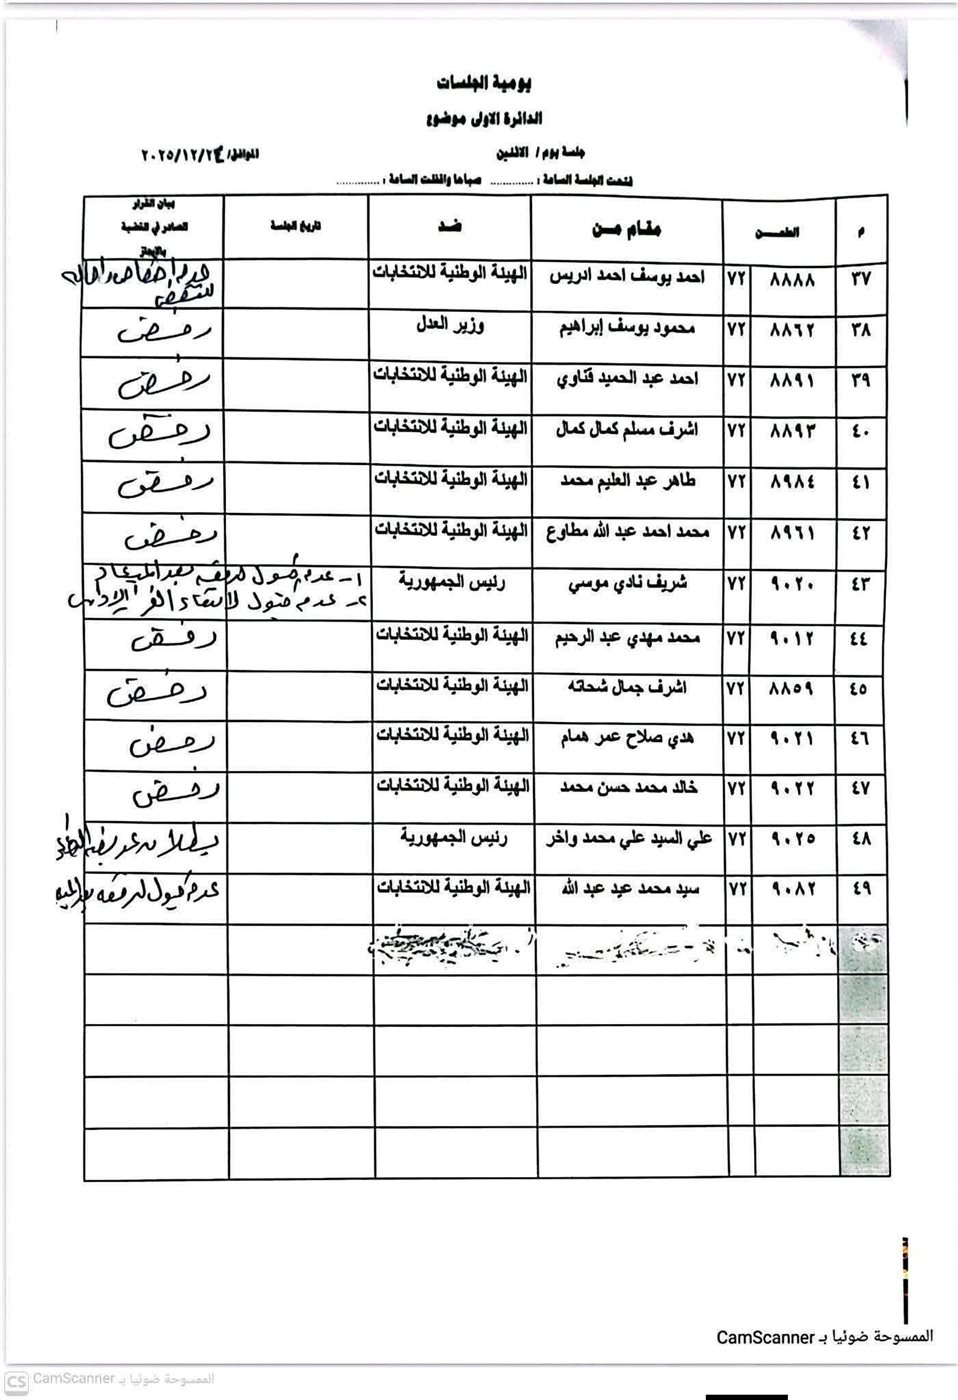 يومية الجلسات
الدائرة الاولى موضوع
جلسة يوم/ الاثنين الموافق/ ٢٠٢٥/١٢/٢٢
فتحت الجلسة الساعة : ............ صباحا واقفلت الساعة : ............
م الطعـــن مقـام مـن ضـد تاريخ الجلسة بيان القرار الصادر في القضية بالايجاز
٣٧ ٨٨٨٨ ٧٢ احمد يوسف احمد ادريس الهيئة الوطنية للانتخابات عدم اختصاص واحالة للنقض
٣٨ ٨٨٦٢ ٧٢ محمود يوسف إبراهيم وزير العدل رفض
٣٩ ٨٨٩١ ٧٢ احمد عبد الحميد قناوي الهيئة الوطنية للانتخابات رفض
٤٠ ٨٨٩٣ ٧٢ اشرف مسلم كمال كمال الهيئة الوطنية للانتخابات رفض
٤١ ٨٩٨٤ ٧٢ طاهر عبد العليم محمد الهيئة الوطنية للانتخابات رفض
٤٢ ٨٩٦١ ٧٢ محمد احمد عبد الله مطاوع الهيئة الوطنية للانتخابات رفض
٤٣ ٩٠٢٠ ٧٢ شريف نادي موسي رئيس الجمهورية ١- عدم قبول لرفعه بعد الميعاد
٢- عدم قبول لانتفاء القرار الإداري
٤٤ ٩٠١٢ ٧٢ محمد مهدي عبد الرحيم الهيئة الوطنية للانتخابات رفض
٤٥ ٨٨٥٩ ٧٢ اشرف جمال شحاته الهيئة الوطنية للانتخابات رفض
٤٦ ٩٠٢١ ٧٢ هدي صلاح عمر همام الهيئة الوطنية للانتخابات رفض
٤٧ ٩٠٢٢ ٧٢ خالد محمد حسن محمد الهيئة الوطنية للانتخابات رفض
٤٨ ٩٠٢٥ ٧٢ علي السيد علي محمد واخر رئيس الجمهورية بطلان عريضة
٤٩ ٩٠٨٢ ٧٢ سيد محمد عيد عبد الله الهيئة الوطنية للانتخابات عدم قبول لرفعه بعد
الممسوحة ضوئيا بـ CamScanner
CS الممسوحة ضوئيا بـ CamScanner